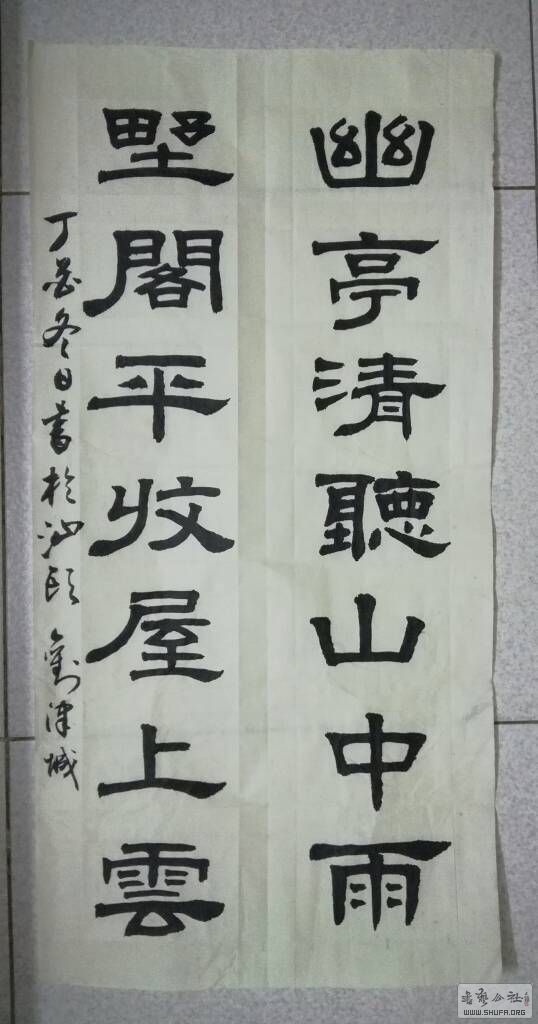 幽亭清聽山中雨
野閣平收屋上雲
丁酉冬日書於汕頭 劉澤城
書藝公社
WWW.SHUFA.ORG